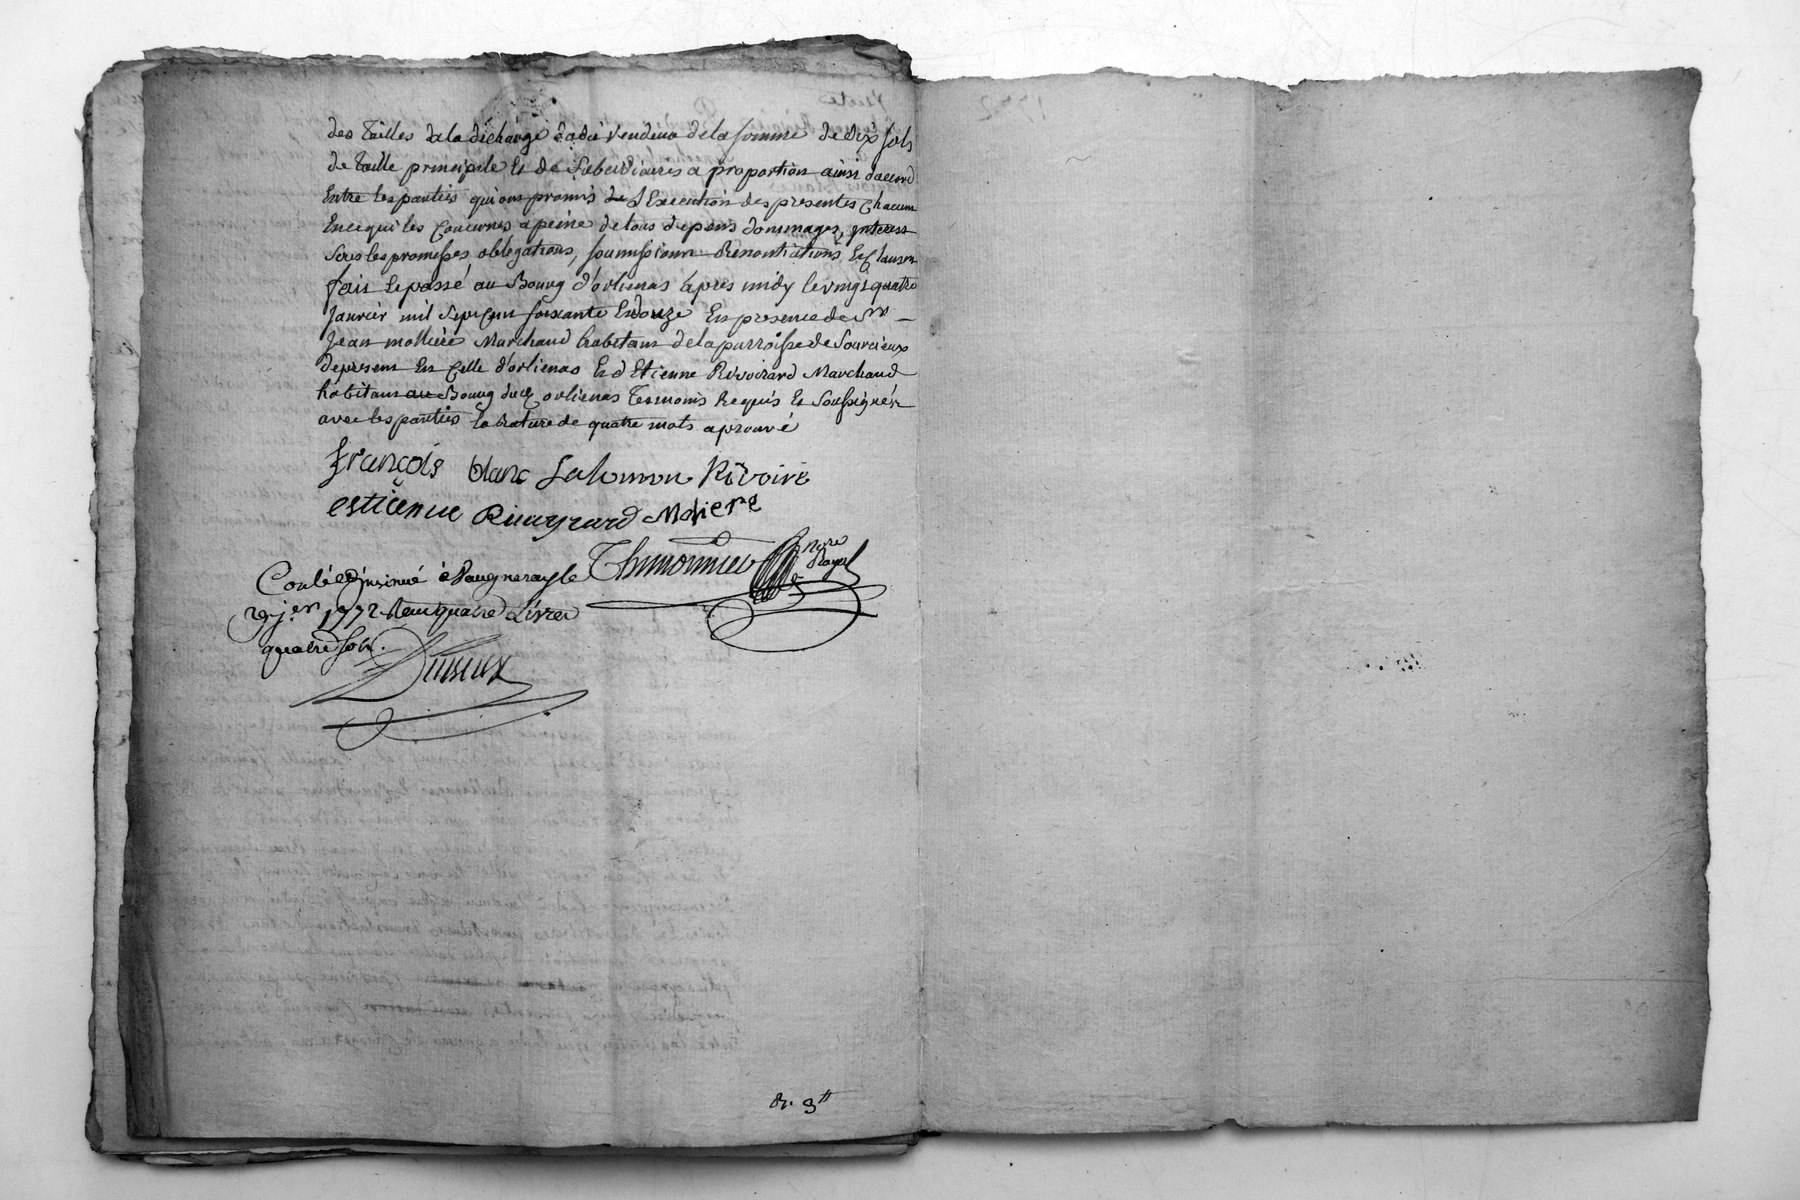 des tailles a la décharge dudit vendeur de la somme de dix sols
de taille principale et de subcidiaires a proportion ainsi d'accord
Entre les parties qui ont promis de l'Execution des presentes chacun
En ce qui les concernes a peine de tous depens dommages, interess
sous les promesses obligations, soumissions Renontiations Et clauses
fait et passé au Bourg d'orlienas après midy le vingt quatre
janvier mil sept cent soixante et douze En presence de Sr
Jean molliere Marchand habitant de la parroisse de Sourcieux
depresent En celle d'orlienas Et d Etienne Rivoirard Marchand
habitant au Bourg dud orlienas Tesmoins Requis Et Soussignés
avec les parties la Rature de quatre mots aprouvé
françois blanc Salomon Rivoire
estienne Rivoyrard Moliere
Thimonnier nore
Royal
Conlé et insinué à Vaugneray le
29 jer 1772 Reçu quatre Livres
quatre sols.
Dr. 3tt
1772